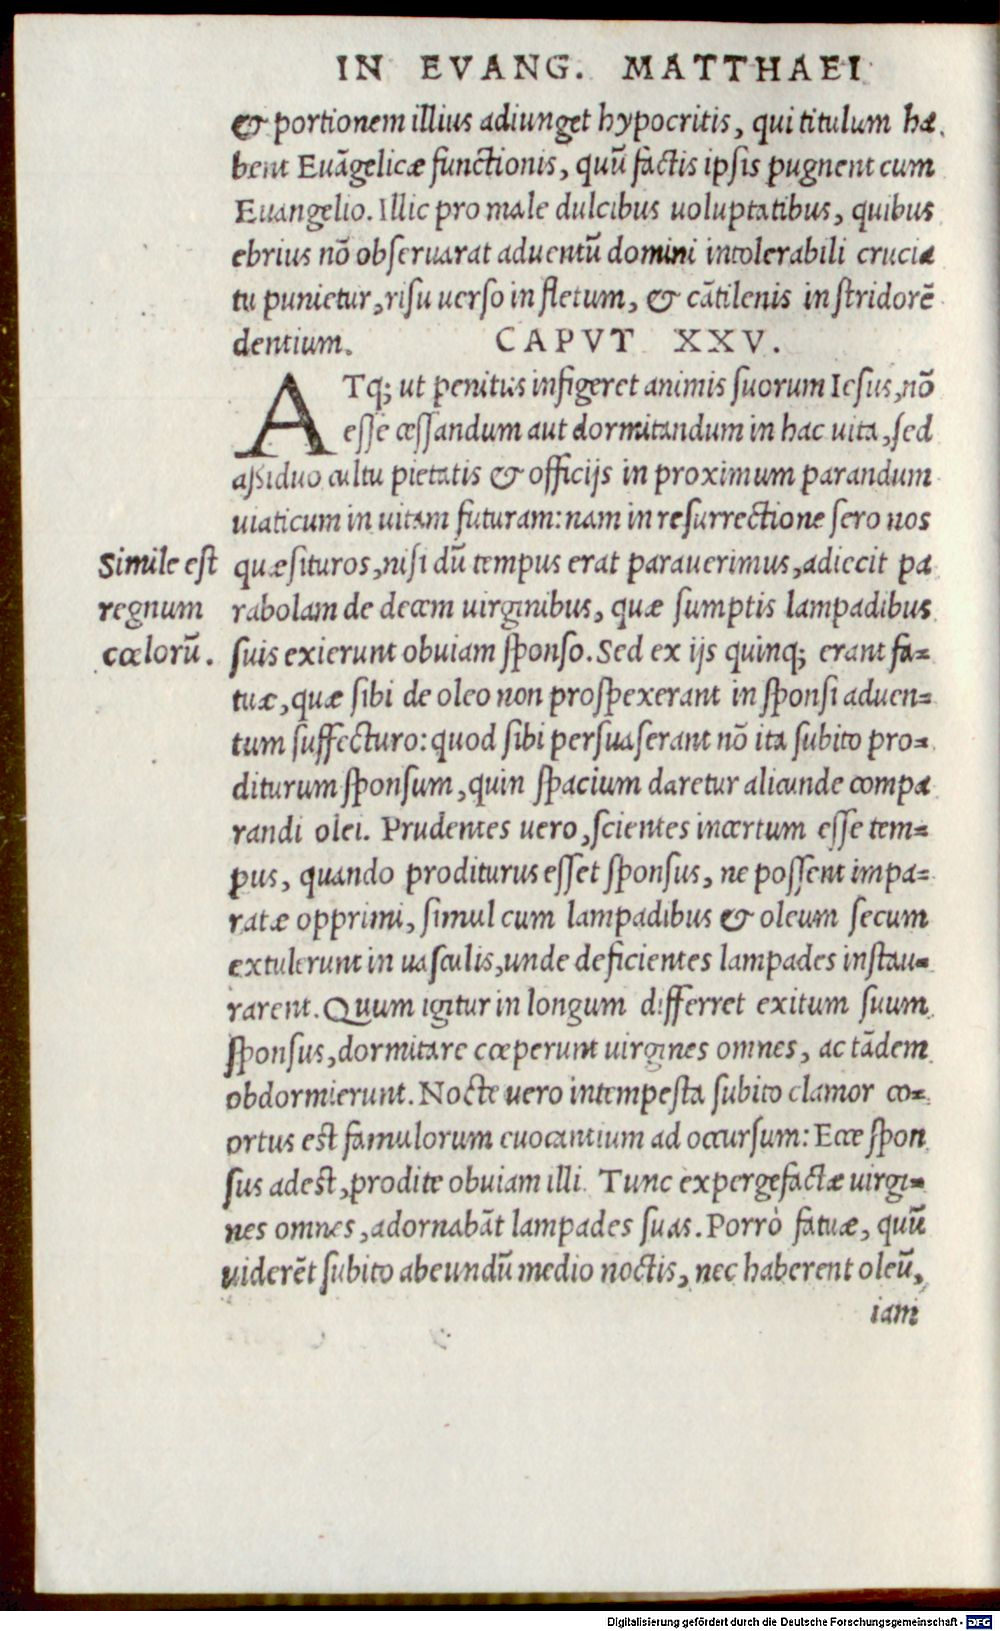 IN EVANG. MATTHAEI
& portionem illius adiunget hypocritis, qui titulum ha
bent Euāgelicæ functionis, quū factis ipsis pugnent cum
Euangelio. Illic pro male dulcibus uoluptatibus, quibus
ebrius nō obseruarat aduentū domini intolerabili crucia
tu punietur, risu uerso in fletum, & cātilenis in stridorē
dentium. CAPVT XXV.
ATq; ut penitus infigeret animis suorum Iesus, nō
esse cessandum aut dormitandum in hac uita, sed
assiduo cultu pietatis & officijs in proximum parandum
uiaticum in uitam futuram: nam in resurrectione sero nos
Simile est
regnum
cœlorū.
quæsituros, nisi dū tempus erat parauerimus, adiecit pa
rabolam de decem uirginibus, quæ sumptis lampadibus
suis exierunt obuiam sponso. Sed ex ijs quinq; erant fa=
tuæ, quæ sibi de oleo non prospexerant in sponsi aduen=
tum suffecturo: quod sibi persuaserant nō ita subito pro=
diturum sponsum, quin spacium daretur alicunde compa
randi olei. Prudentes uero, scientes incertum esse tem=
pus, quando proditurus esset sponsus, ne possent impa=
ratæ opprimi, simul cum lampadibus & oleum secum
extulerunt in uasculis, unde deficientes lampades instau=
rarent. Quum igitur in longum differret exitum suum
sponsus, dormitare cœperunt uirgines omnes, ac tādem
obdormierunt. Nocte uero intempesta subito clamor co=
ortus est famulorum euocantium ad occursum: Ecce spon
sus adest, prodite obuiam illi. Tunc expergefactæ uirgi=
nes omnes, adornabāt lampades suas. Porrò fatuæ, quū
uiderēt subito abeundū medio noctis, nec haberent oleū,
iam
Digitalisierung gefördert durch die Deutsche Forschungsgemeinschaft - DFG